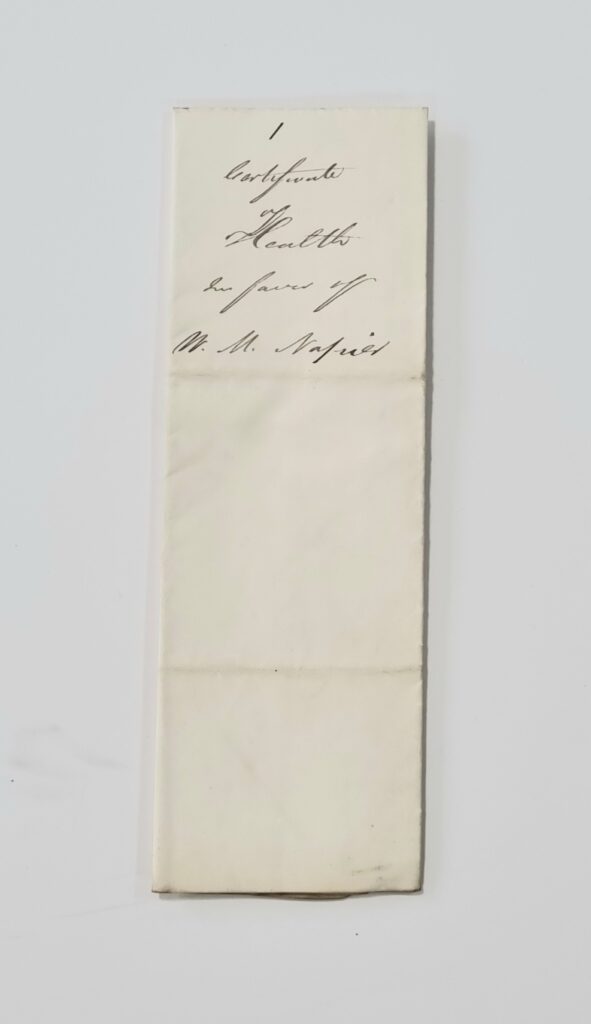 1
Certificate
of
Health
in favor of
W. M. Napier